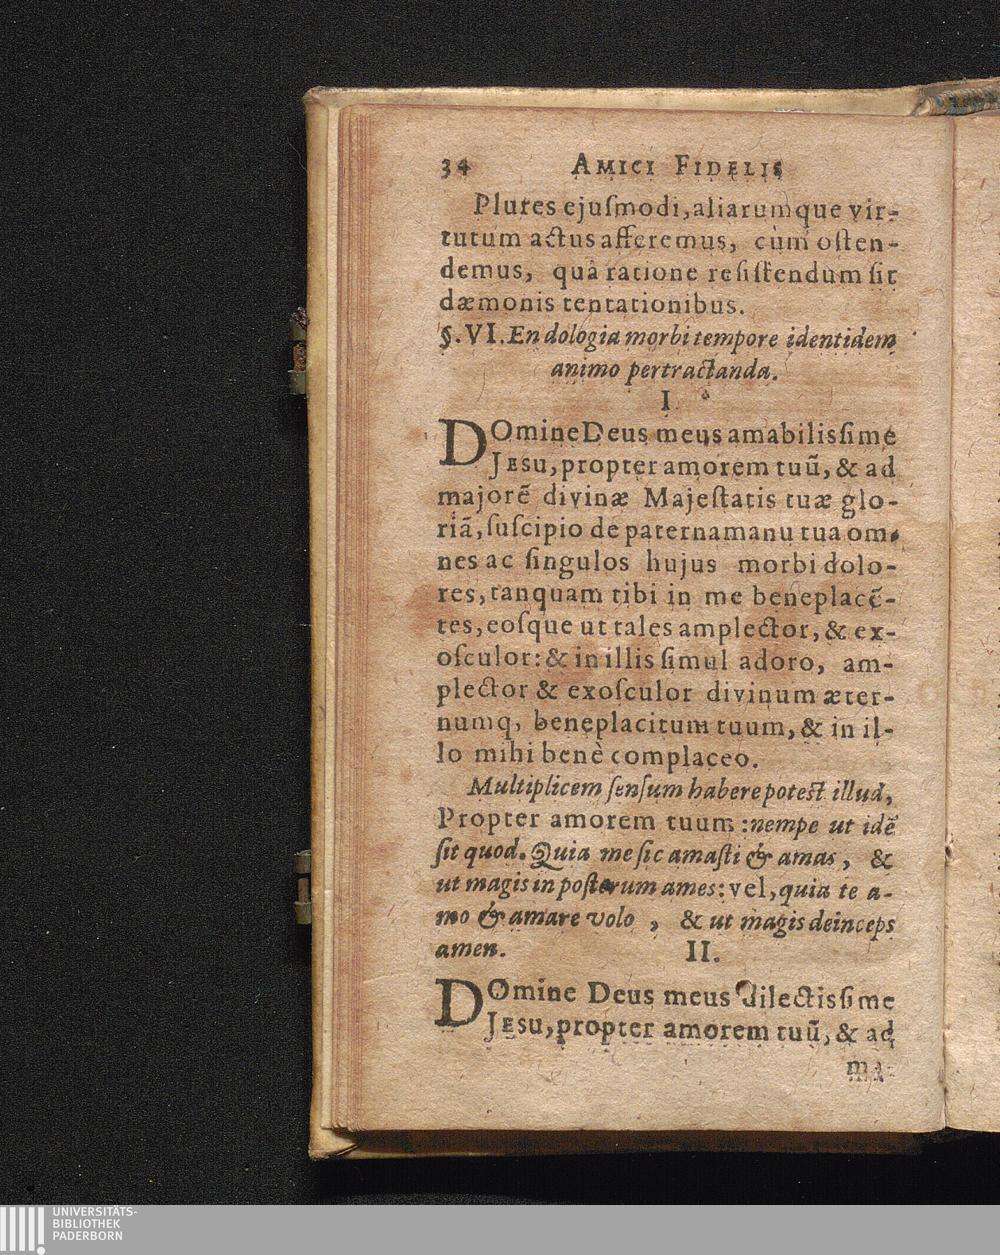 34 AMICI FIDELIS
Plures ejuſmodi, aliarumque vir-
tutum actus afferemus, cùm oſten-
demus, quâ ratione reſiſtendum ſit
dæmonis tentationibus.
§. VI. En dologia morbi tempore identidem
animo pertractanda.
I.
DOmine Deus meus amabilisſime
JESU, propter amorem tuũ, & ad
majorẽ divinæ Majeſtatis tuæ glo-
riã, ſuſcipio de paterna manu tua om-
nes ac ſingulos hujus morbi dolo-
res, tanquam tibi in me beneplacẽ-
tes, eoſque ut tales amplector, & ex-
oſculor: & in illis ſimul adoro, am-
plector & exoſculor divinum æter-
numq, beneplacitum tuum, & in il-
lo mihi benè complaceo.
Multiplicem ſenſum habere poteſt illud,
Propter amorem tuum: nempe ut idẽ
ſit quod. Quia me ſic amaſti & amas, &
ut magis in poſterum ames: vel, quia te a-
mo & amare volo, & ut magis deinceps
amen. II.
DOmine Deus meus dilectisſime
JESU, propter amorem tuũ, & ad
ma-
UNIVERSITÄTS-
BIBLIOTHEK
PADERBORN